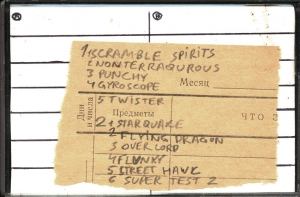 A B
1 SCRAMBLE SPIRITS
2 NONTERRAQUROUS
3 PUNCHY
4 GYROSCOPE Месяц
5 TWISTER
Дни и числа Предметы ЧТО З
2 1 STARQUAKE
2 FLYING DRAGON
3 OVER LORD
4 FLUNKY
5 STREET HAWK
6 SUPER TEST 2